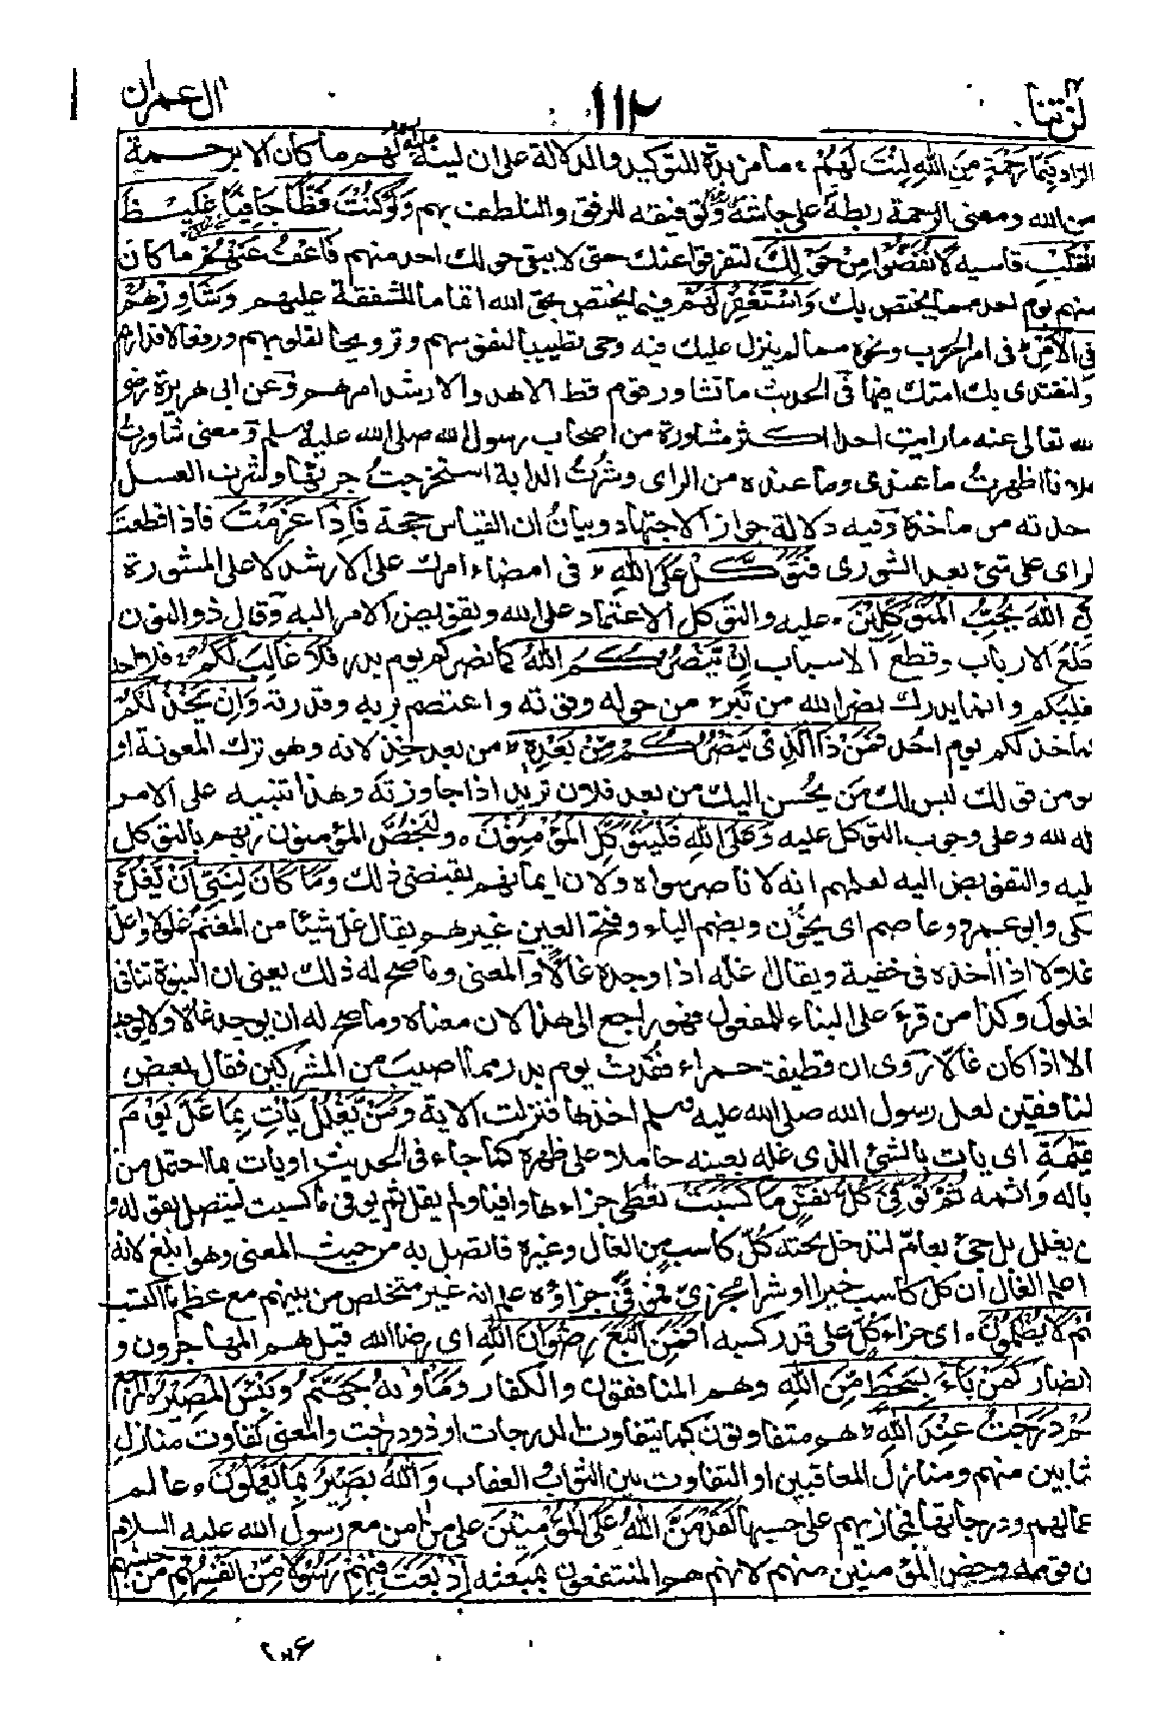 لن تنا
١١٢
ال عمران
فَبِمَا رَحْمَةٍ مِنَ اللهِ لِنْتَ لَهُمْ ما مزيدة للتوكيد والدلالة على ان لينه لهم ما كان الا برحمة
من الله ومعنى الرحمة ربطه على جاشه وتوفيقه للرفق والتلطف بهم وَلَوْ كُنْتَ فَظًّا جافيا غَلِيظَ
الْقَلْبِ قاسيه لَانْفَضُّوا مِنْ حَوْلِكَ لتفرقوا عنك حتى لا يبقى حولك احد منهم فَاعْفُ عَنْهُمْ ما كان
منهم يوم احد مما يختص بك وَاسْتَغْفِرْ لَهُمْ فيما يختص بحق الله اتماما للشفقة عليهم وَشَاوِرْهُمْ
فِي الْأَمْرِ فى امر الحرب ونحوه مما لم ينزل عليك فيه وحى تطييبا لنفوسهم وترويحا لقلوبهم ورفعا لاقدارهم
ولتقتدى بك امتك فيها فى الحديث ما تشاور قوم قط الا هدوا لارشد امرهم وعن ابى هريرة رضى
الله تعالى عنه ما رايت احدا اكثر مشاورة من اصحاب رسول الله صلى الله عليه وسلم ومعنى شاورت
فلانا اظهرت ما عندى وما عنده من الراى وشرت الدابة استخرجت جريها وشرت العسل
اخذته من مأخذه وفيه دلالة جواز الاجتهاد وبيان ان القياس حجة فَإِذَا عَزَمْتَ فاذا قطعت
الراى على شئ بعد الشورى فَتَوَكَّلْ عَلَى اللهِ فى امضاء امرك على الارشد لا على المشورة
إِنَّ اللهَ يُحِبُّ الْمُتَوَكِّلِينَ عليه والتوكل الاعتماد على الله وتفويض الامر اليه وقال ذو النون
خلع الارباب وقطع الاسباب إِنْ يَنْصُرْكُمُ اللهُ كما نصركم يوم بدر فَلَا غَالِبَ لَكُمْ فلا احد
يغلبكم وانما يدرك نصر الله من تبرء من حوله وقوته واعتصم بربه وقدرته وَإِنْ يَخْذُلْكُمْ
كما خذلكم يوم احد فَمَنْ ذَا الَّذِي يَنْصُرُكُمْ مِنْ بَعْدِهِ من بعد خذلانه وهو ترك المعونة او
هو من قولك ليس لك من يحسن اليك من بعد فلان تريد اذا جاوزته وهذا تنبيه على ان الامر
كله لله وعلى وجوب التوكل عليه وَعَلَى اللهِ فَلْيَتَوَكَّلِ الْمُؤْمِنُونَ وليخص المؤمنون ربهم بالتوكل
عليه والتفويض اليه لعلمهم انه لا ناصر سواه ولان ايمانهم يقتضى ذلك وَمَا كَانَ لِنَبِيٍّ أَنْ يَغُلَّ
مكى وابو عمرو وعاصم اى يخون وبضم الياء وفتح الغين غيرهم يقال غل شيئا من المغنم غلولا واغل
اغلالا اذا اخذه فى خفية ويقال اغله اذا وجده غالا والمعنى وما صح له ذلك يعنى ان النبوة تنافى
الغلول وكذا من قرء على البناء للمفعول فهو راجع الى هذا لان معناه وما صح له ان يوجد غالا ولا يوجد غالا
الا اذا كان غالا روى ان قطيفة حمراء فقدت يوم بدر مما اصيب من المشركين فقال بعض
المنافقين لعل رسول الله صلى الله عليه وسلم اخذها فنزلت الاية وَمَنْ يَغْلُلْ يَأْتِ بِمَا غَلَّ يَوْمَ
الْقِيٰمَةِ اى يات بالشئ الذى غله بعينه حاملا على ظهره كما جاء فى الحديث او يات بما احتمل من
وباله واثمه ثُمَّ تُوَفَّى كُلُّ نَفْسٍ مَا كَسَبَتْ تعطى جزاءها وافيا ولم يقل ثم يوفى ما كسبت ليتصل بقوله و
من يغلل بل جئ بعام ليدخل تحته كل كاسب من الغال وغيره فاتصل به من حيث المعنى وهو ابلغ لانه
اذا علم الغال ان كل كاسب خيرا او شرا مجزى فموفى جزاؤه علم انه غير متخلص من بينهم مع عظم ما اكتسب
وَهُمْ لَا يُظْلَمُونَ اى جزاء كل على قدر كسبه أَفَمَنِ اتَّبَعَ رِضْوَانَ اللهِ اى رضا الله قيل هم المهاجرون و
الانصار كَمَنْ بَاءَ بِسَخَطٍ مِنَ اللهِ وهم المنافقون والكفار وَمَأْوٰىهُ جَهَنَّمُ وَبِئْسَ الْمَصِيرُ المرجع
هُمْ دَرَجٰتٌ عِنْدَ اللهِ هم متفاوتون كما يتفاوت الدرجات او ذوو درجت والمعنى تفاوت منازل
المثابين منهم ومنازل المعاقبين او التفاوت بين الثواب والعقاب وَاللهُ بَصِيرٌ بِمَا يَعْمَلُونَ عالم
باعمالهم ودرجاتها فيجازيهم على حسبها لَقَدْ مَنَّ اللهُ عَلَى الْمُؤْمِنِينَ على من امن مع رسول الله عليه السلام
من قومه وخص المؤمنين منهم لانهم هم المنتفعون بمبعثه إِذْ بَعَثَ فِيهِمْ رَسُولًا مِنْ أَنْفُسِهِمْ من جنسهم